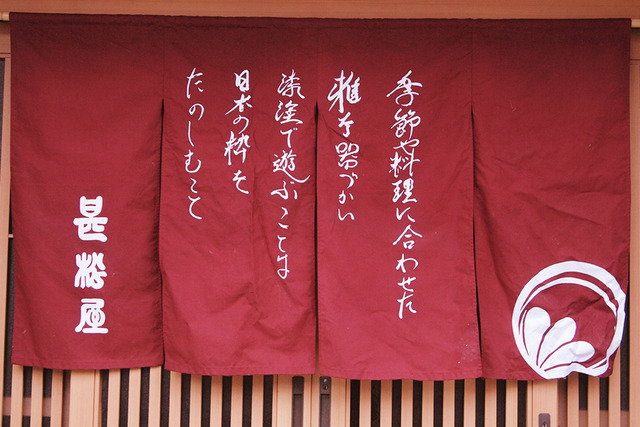 季節や料理に合わせた
雅な器づかい
漆塗で遊ぶことは
日本の粋を
たのしむこと
甚松屋